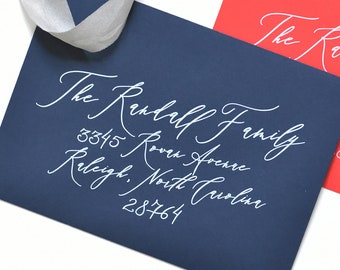 The Randall Family
3345 Rowan Avenue
Raleigh, North Carolina
28764
The Ra